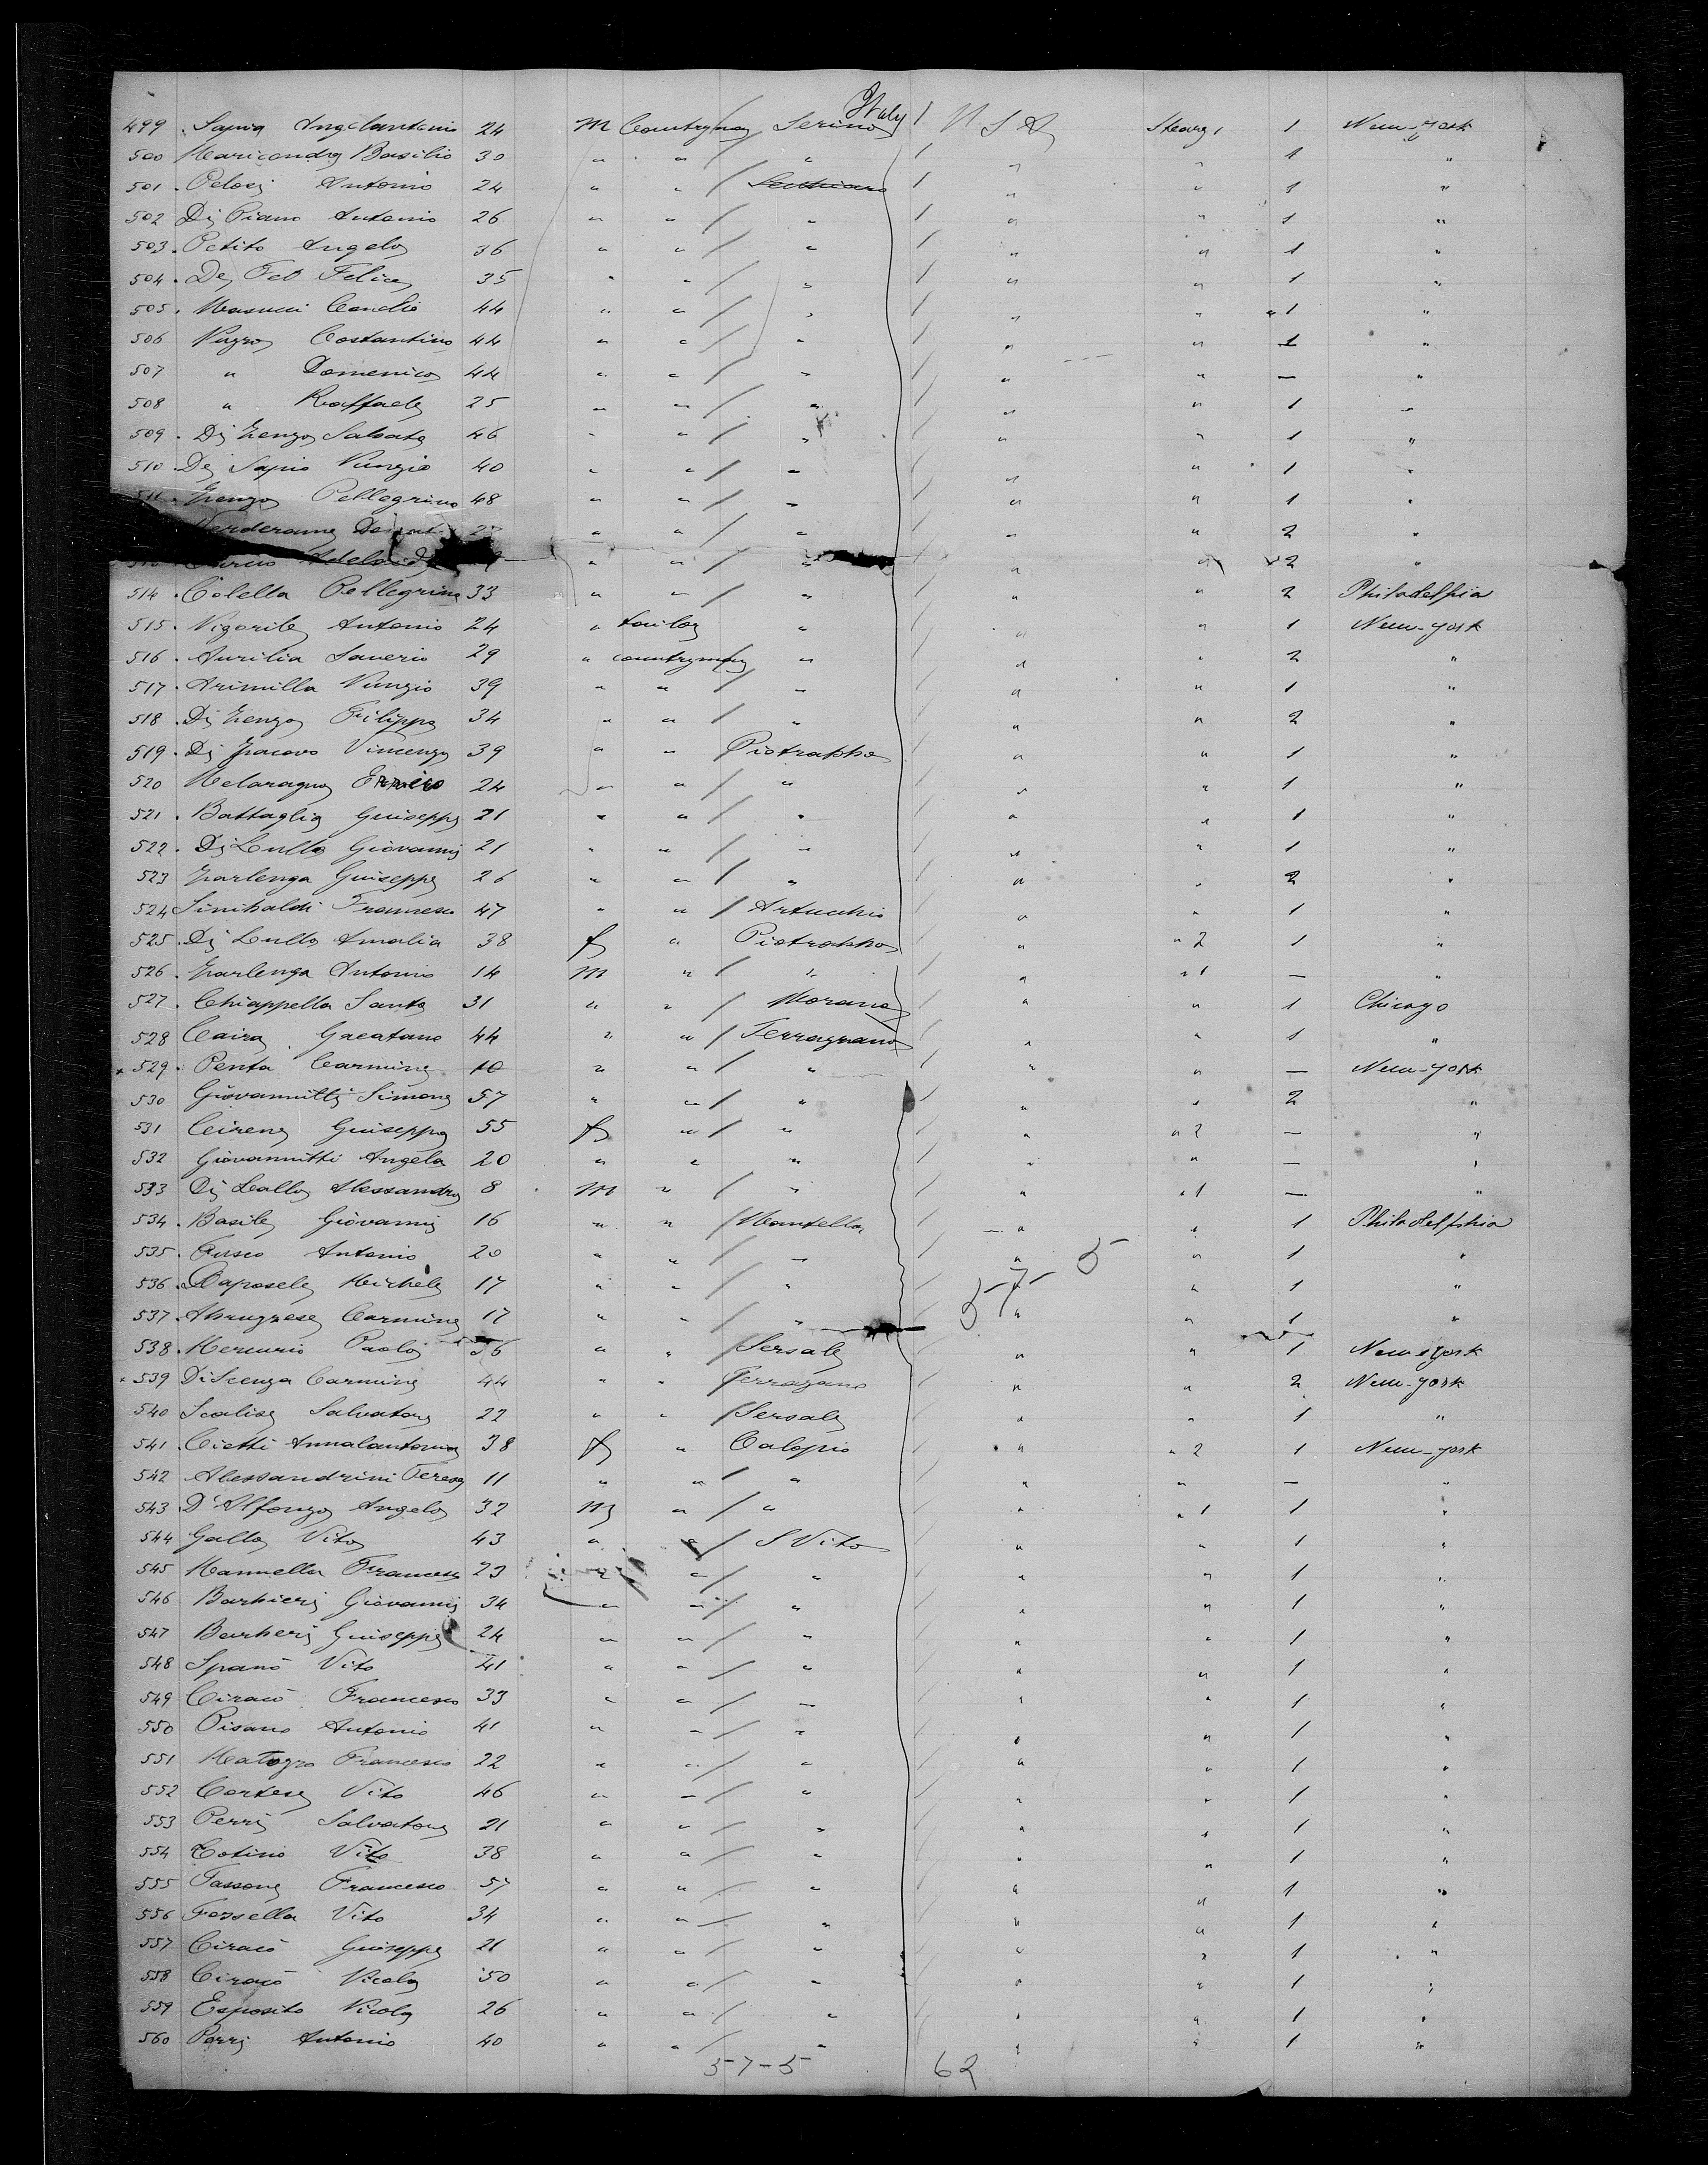 Italy
499 Sapia Angelantonio 24 m Countryman Serino / U S A Steerg 1 1 New-york
500 Maricondo Basilio 30 " " " / " " 1 "
501 . Pelosi Antonio 24 " " / / " " 1 "
502 Di Piano Antonio 26 " " / " / " " 1 "
503 . Petito Angelo 36 " " / " / " " 1 "
504 . De Feo Felice 35 " " / " / " " 1 "
505 . Masucci 44 " " / " / " " 1 "
506 Costantino 44 " " / " / " " 1 "
507 " Domenico 44 " " / " / " " — "
508 " Raffaele 25 " " / " / " " 1 "
509 . Di Zenzo 46 " " / " / " " 1 "
510 . De Sapio Nunzio 40 " " / " / " " 1 "
Zenzo Pellegrino 48 " " / " / " " 1 "
Verderame " " / " / " " 2 "
" " / " " " 2 "
514 . Colella Pellegrino 33 " " / " / " " 2 Philadelphia
515 . Vigorile Antonio 24 " " / " " 1 New-york
516 . Aurilia Saverio 29 " countryman " / " " 2 "
517 . Arimilla Nunzio 39 " " / " / " " 1 "
518 . Di Zenzo Filippo 34 " " / " / " " 2 "
519 . Di Iacovo Vincenzo 39 " " / " " 1 "
520 Melaragno 24 " " / " / " " 1 "
521 . Battaglia Guiseppe 21 " " / " / " " 1 "
522 . Di Lullo Giovanni 21 " " / " / " " 1 "
523 Zarlenga Guiseppe 26 " " / " / " " 2 "
524 Sinibaldi Francesco 47 " " / / " " 1 "
525 . Di Lullo Amalia 38 f " / " " 2 1 "
526 . Zarlenga Antonio 14 m " / " / " " 1 — "
527 . Chiappetta Santo 31 " " / Morano / " " 1 Chicago
528 Caira Gaeatano 44 " " / Ferragnano / " " 1 "
x 529 . Penta Carmine 10 " " / " / " " — New-york
530 Giovannitti Simone 57 " " / " / " " 2 "
531 Cirene Guiseppa 55 f " / " / " " 2 — "
532 Giovannitti Angela 20 " " " / " " — "
533 Di Lallo Alessandro 8 m " / " / " " 1 — "
534 . Basile Giovanni 16 " " / Montella / " " 1 Philadelphia
535 . Fusco Antonio 20 " " / " / " " 1 "
57-5
536 . Caposele Michele 17 " " / " / " " 1 "
537 . Abruzzese Carmine 17 " " / " / " " 1 "
538 . Mercurio Paolo 36 " " / Sersale / " " 1 New-york
x 539 Di Scenza Carmine 44 " " / Ferrazano / " " 2 New-york
540 Scalise Salvatore 22 " " / Sersale / " " 1 "
541 . Cietti Annalantonia 38 f " / Calopio / " " 2 1 New-york
542 Alessandrini Teresa 11 " " / " / " " — "
543 . D'Alfonzo Angelo 32 m " / " / " " 1 1 "
544 Gallo Vito 43 " " / S Vito / " " 1 "
545 Mannella Francesco 23 " " / " / " " 1 "
546 Barbieri Giovanni 34 " " / " / " " 1 "
547 Barberi Guiseppe 24 " " / " / " " 1 "
548 Spanò Vito 41 " " / " / " " 1 "
549 Ciracò Francesco 33 " " / " / " " 1 "
550 Pisano Antonio 41 " " / " / " " 1 "
551 Francesco 22 " " / " / " " 1 "
552 Cortese Vito 46 " " / " / " " 1 "
553 Perri Salvatore 21 " " / " / " " 1 "
554 Cotino Vito 38 " " / " / " " 1 "
555 Tassone Francesco 57 " " / " / " " 1 "
556 Fossella Vito 34 " " / " / " " 1 "
557 Ciracò Guiseppe 21 " " / " / " " 1 "
558 Ciracò Nicola 50 " " / " / " " 1 "
559 Esposito Nicola 26 " " / " / " " 1 "
560 Perri Antonio 40 " " / " / " " 1 "
57-5 62